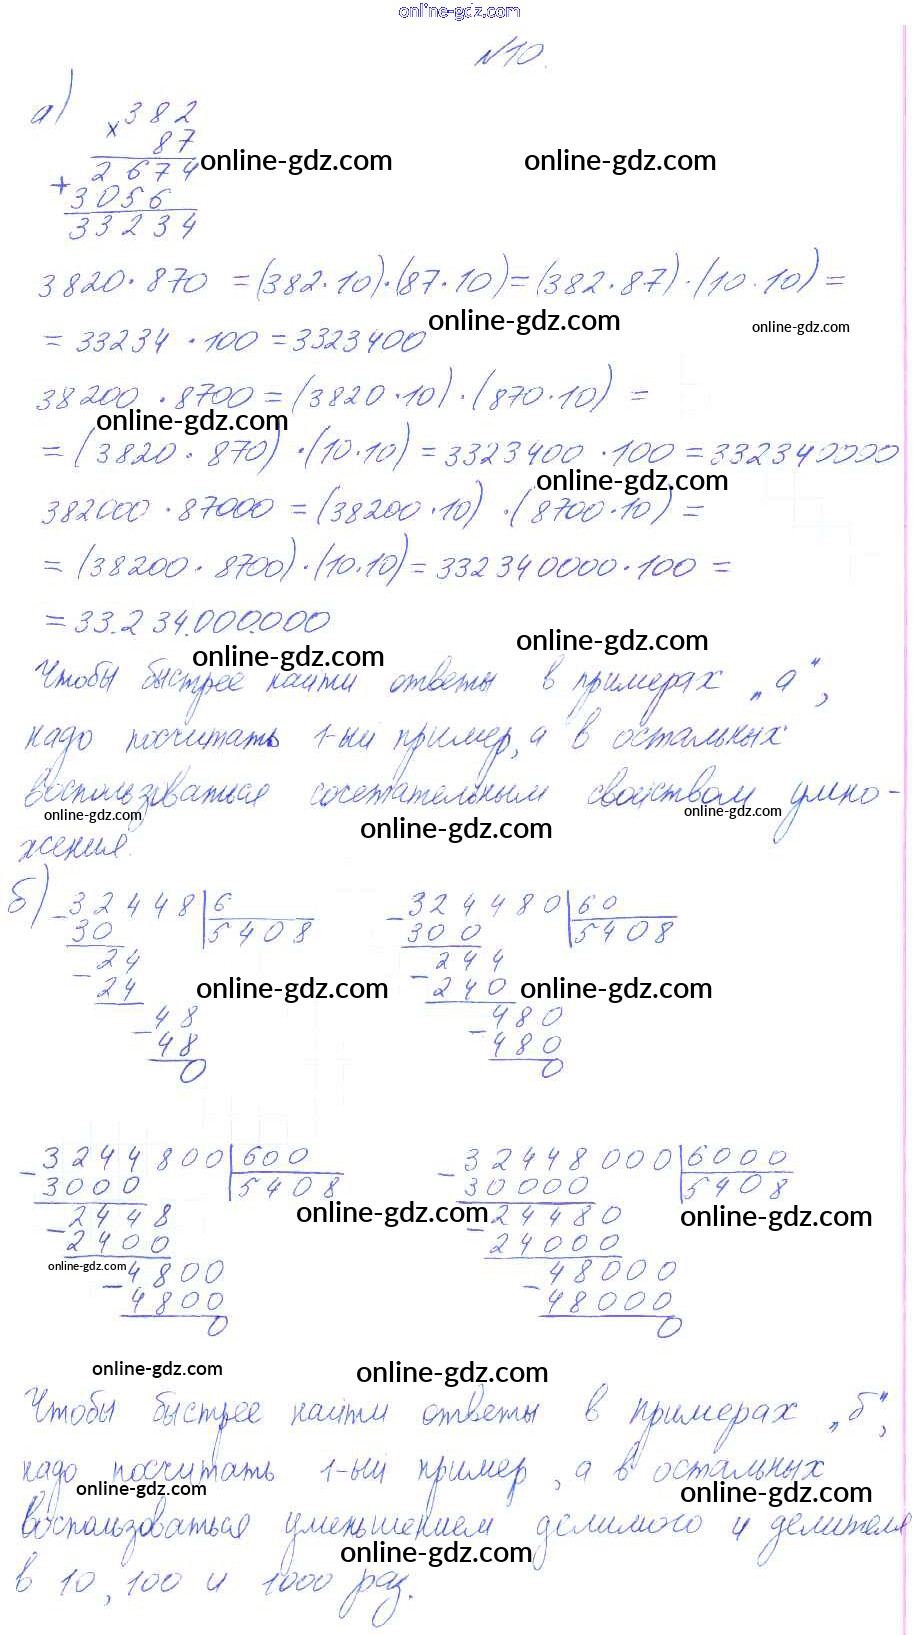 online-gdz.com
№10.
а) × 382
87
online-gdz.com online-gdz.com
2674
+ 3056
33234
3820 · 870 = (382 · 10) · (87 · 10) = (382 · 87) · (10 · 10) =
online-gdz.com online-gdz.com
= 33234 · 100 = 3323400
38200 · 8700 = (3820 · 10) · (870 · 10) =
online-gdz.com
= (3820 · 870) · (10 · 10) = 3323400 · 100 = 332340000
online-gdz.com
382000 · 87000 = (38200 · 10) · (8700 · 10) =
= (38200 · 8700) · (10 · 10) = 332340000 · 100 =
= 33.234.000.000
online-gdz.com online-gdz.com
Чтобы быстрее найти ответы в примерах „а“,
надо посчитать 1-ый пример, а в остальных
воспользоваться сочетательным свойством умно-
online-gdz.com online-gdz.com online-gdz.com
жения.
б) – 32448 | 6 – 324480 | 60
30 5408 300 5408
– 24 – 244
24 240
online-gdz.com online-gdz.com
– 48 – 480
48 480
0 0
– 3244800 | 600 – 32448000 | 6000
3000 5408 30000 5408
online-gdz.com online-gdz.com
– 2448 – 24480
2400 24000
online-gdz.com
– 4800 – 48000
4800 48000
0 0
online-gdz.com online-gdz.com
Чтобы быстрее найти ответы в примерах „б“,
надо посчитать 1-ый пример, а в остальных
online-gdz.com online-gdz.com
воспользоваться уменьшением делимого и делителя
online-gdz.com
в 10, 100 и 1000 раз.